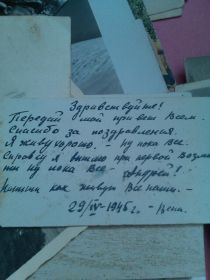 Здравствуйте!
Передай мой привет Всем.
Спасибо за поздравления.
Я живу хорошо. - Ну пока Все.
Справку я вышлю при первой Возм
ти ну пока Все - Андрей!
Напиши как живут Все наши. -
29/IV-1945 г. -